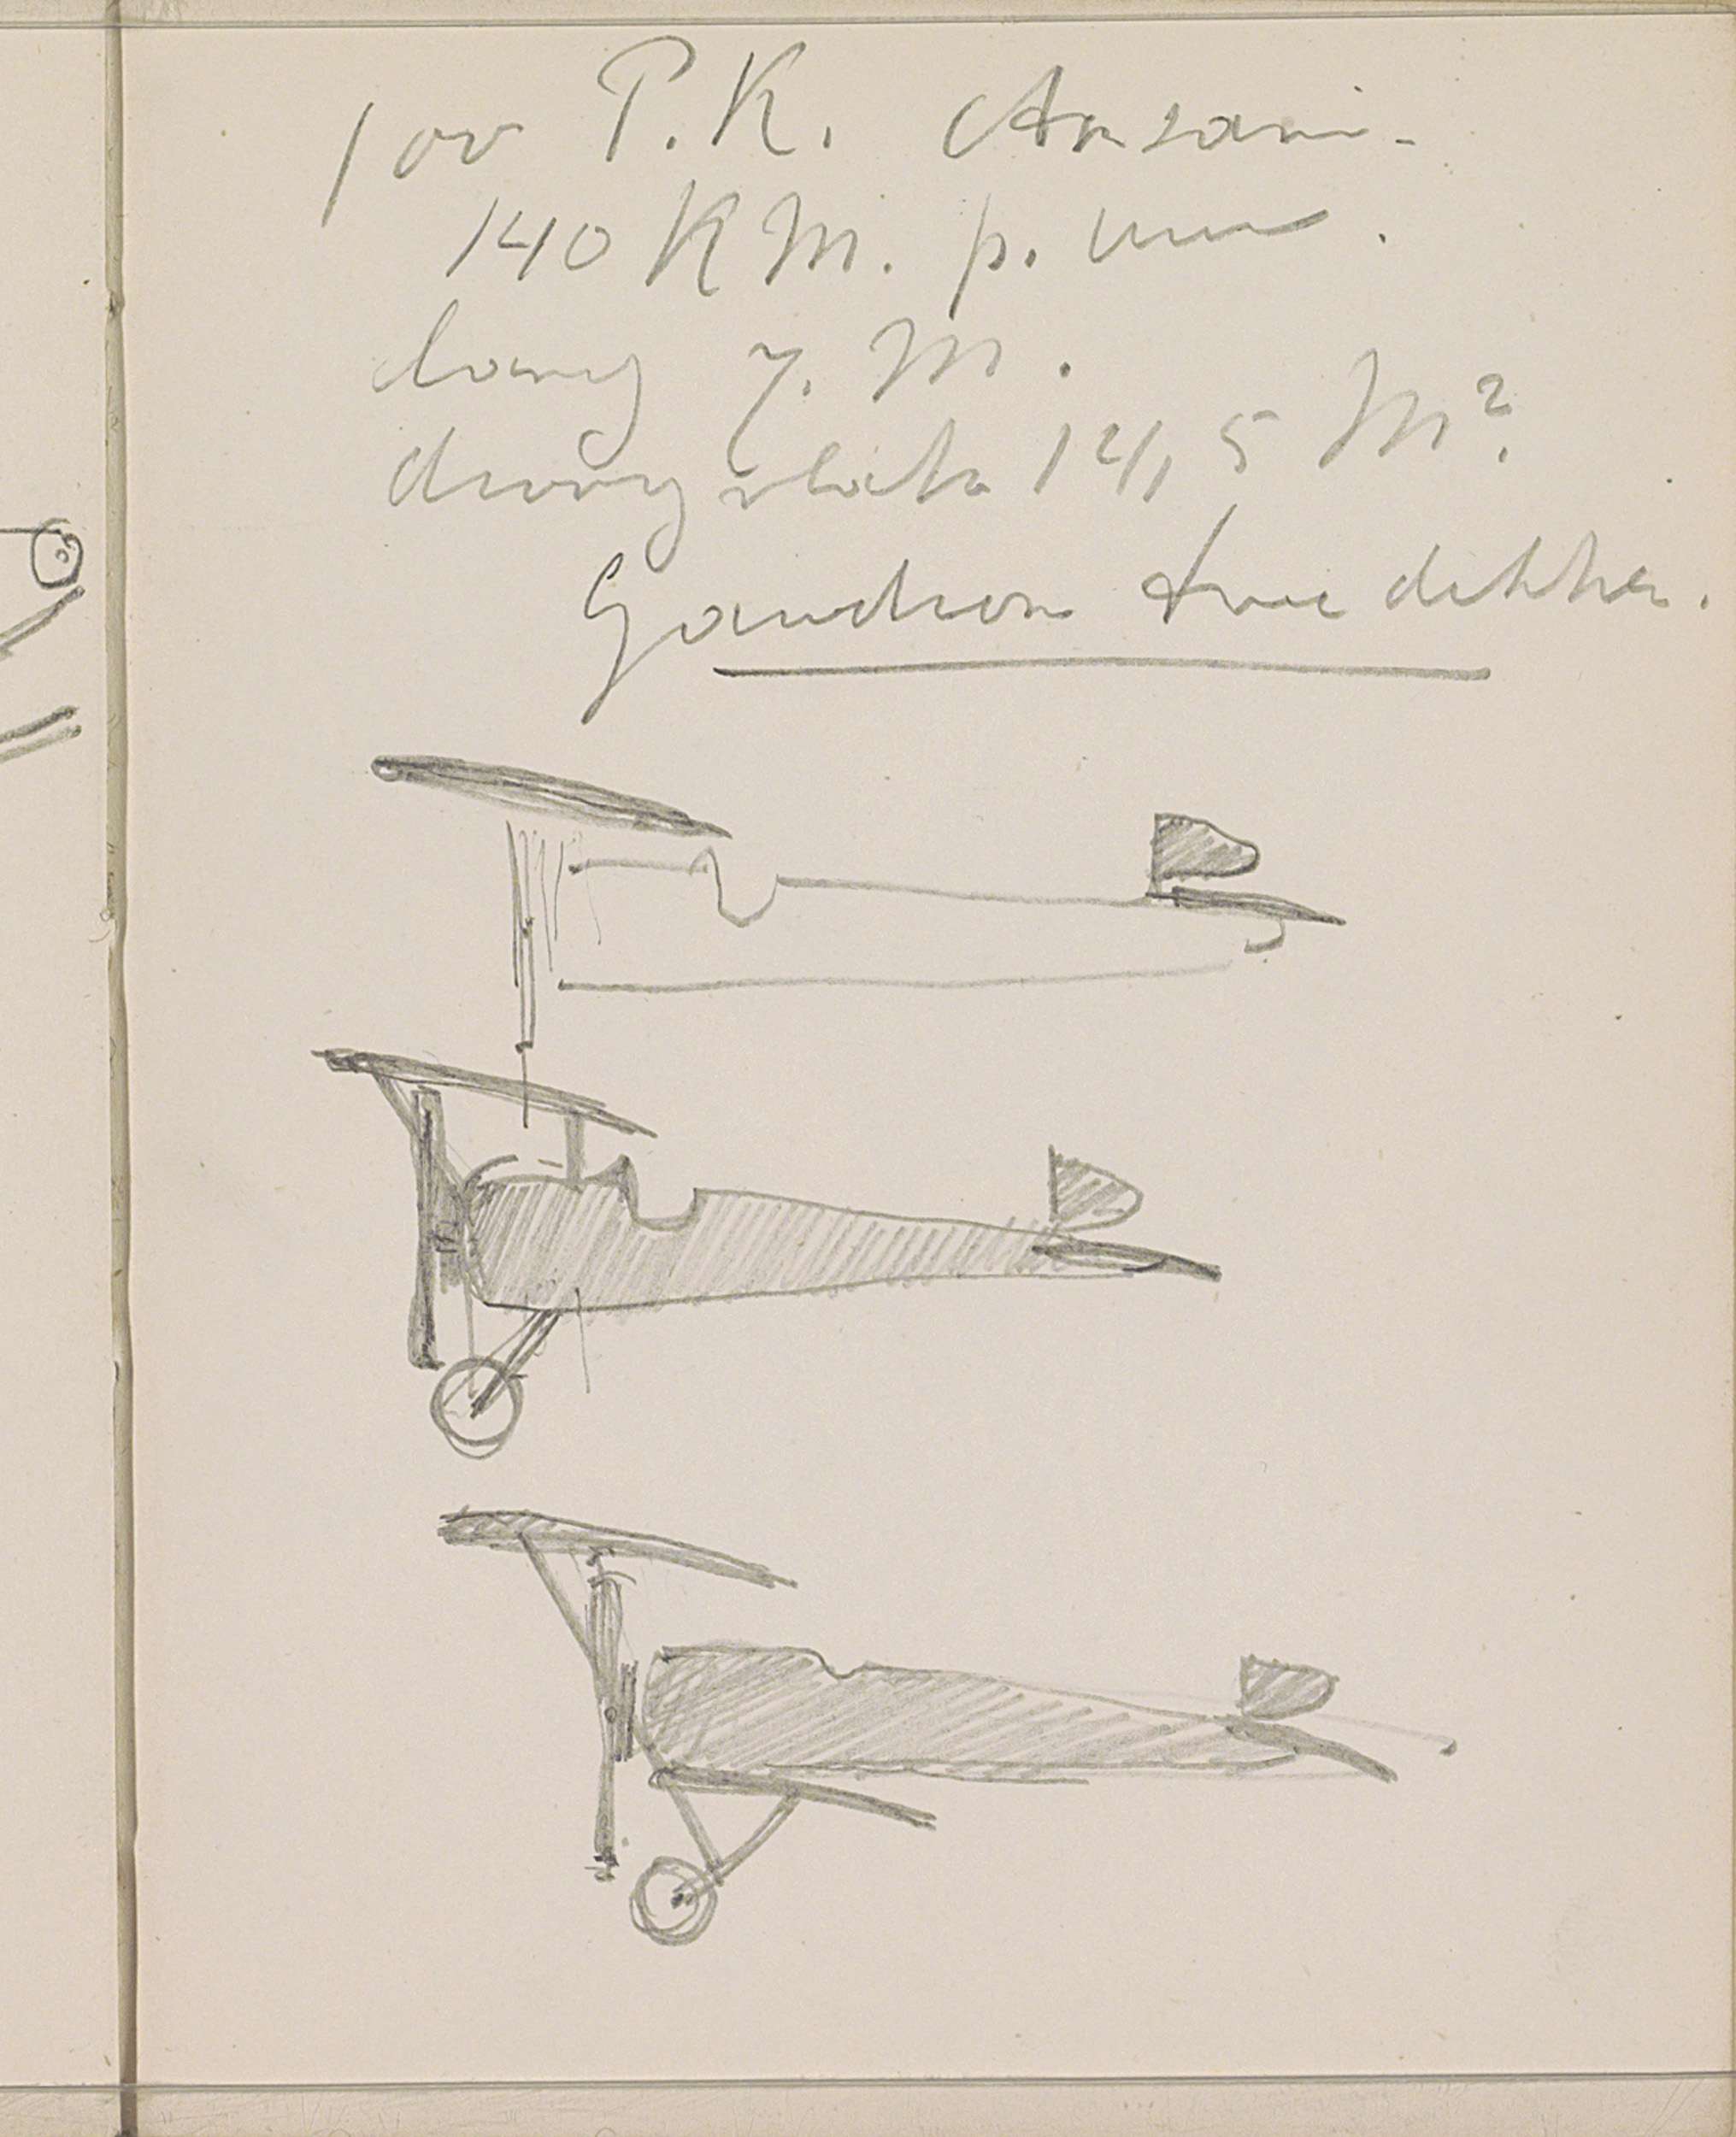 100 P.K. Anzani.
140 KM. p. uur.
lang 7. M.
draagvlakte 14,5 M².
Gaudron tweedekker.